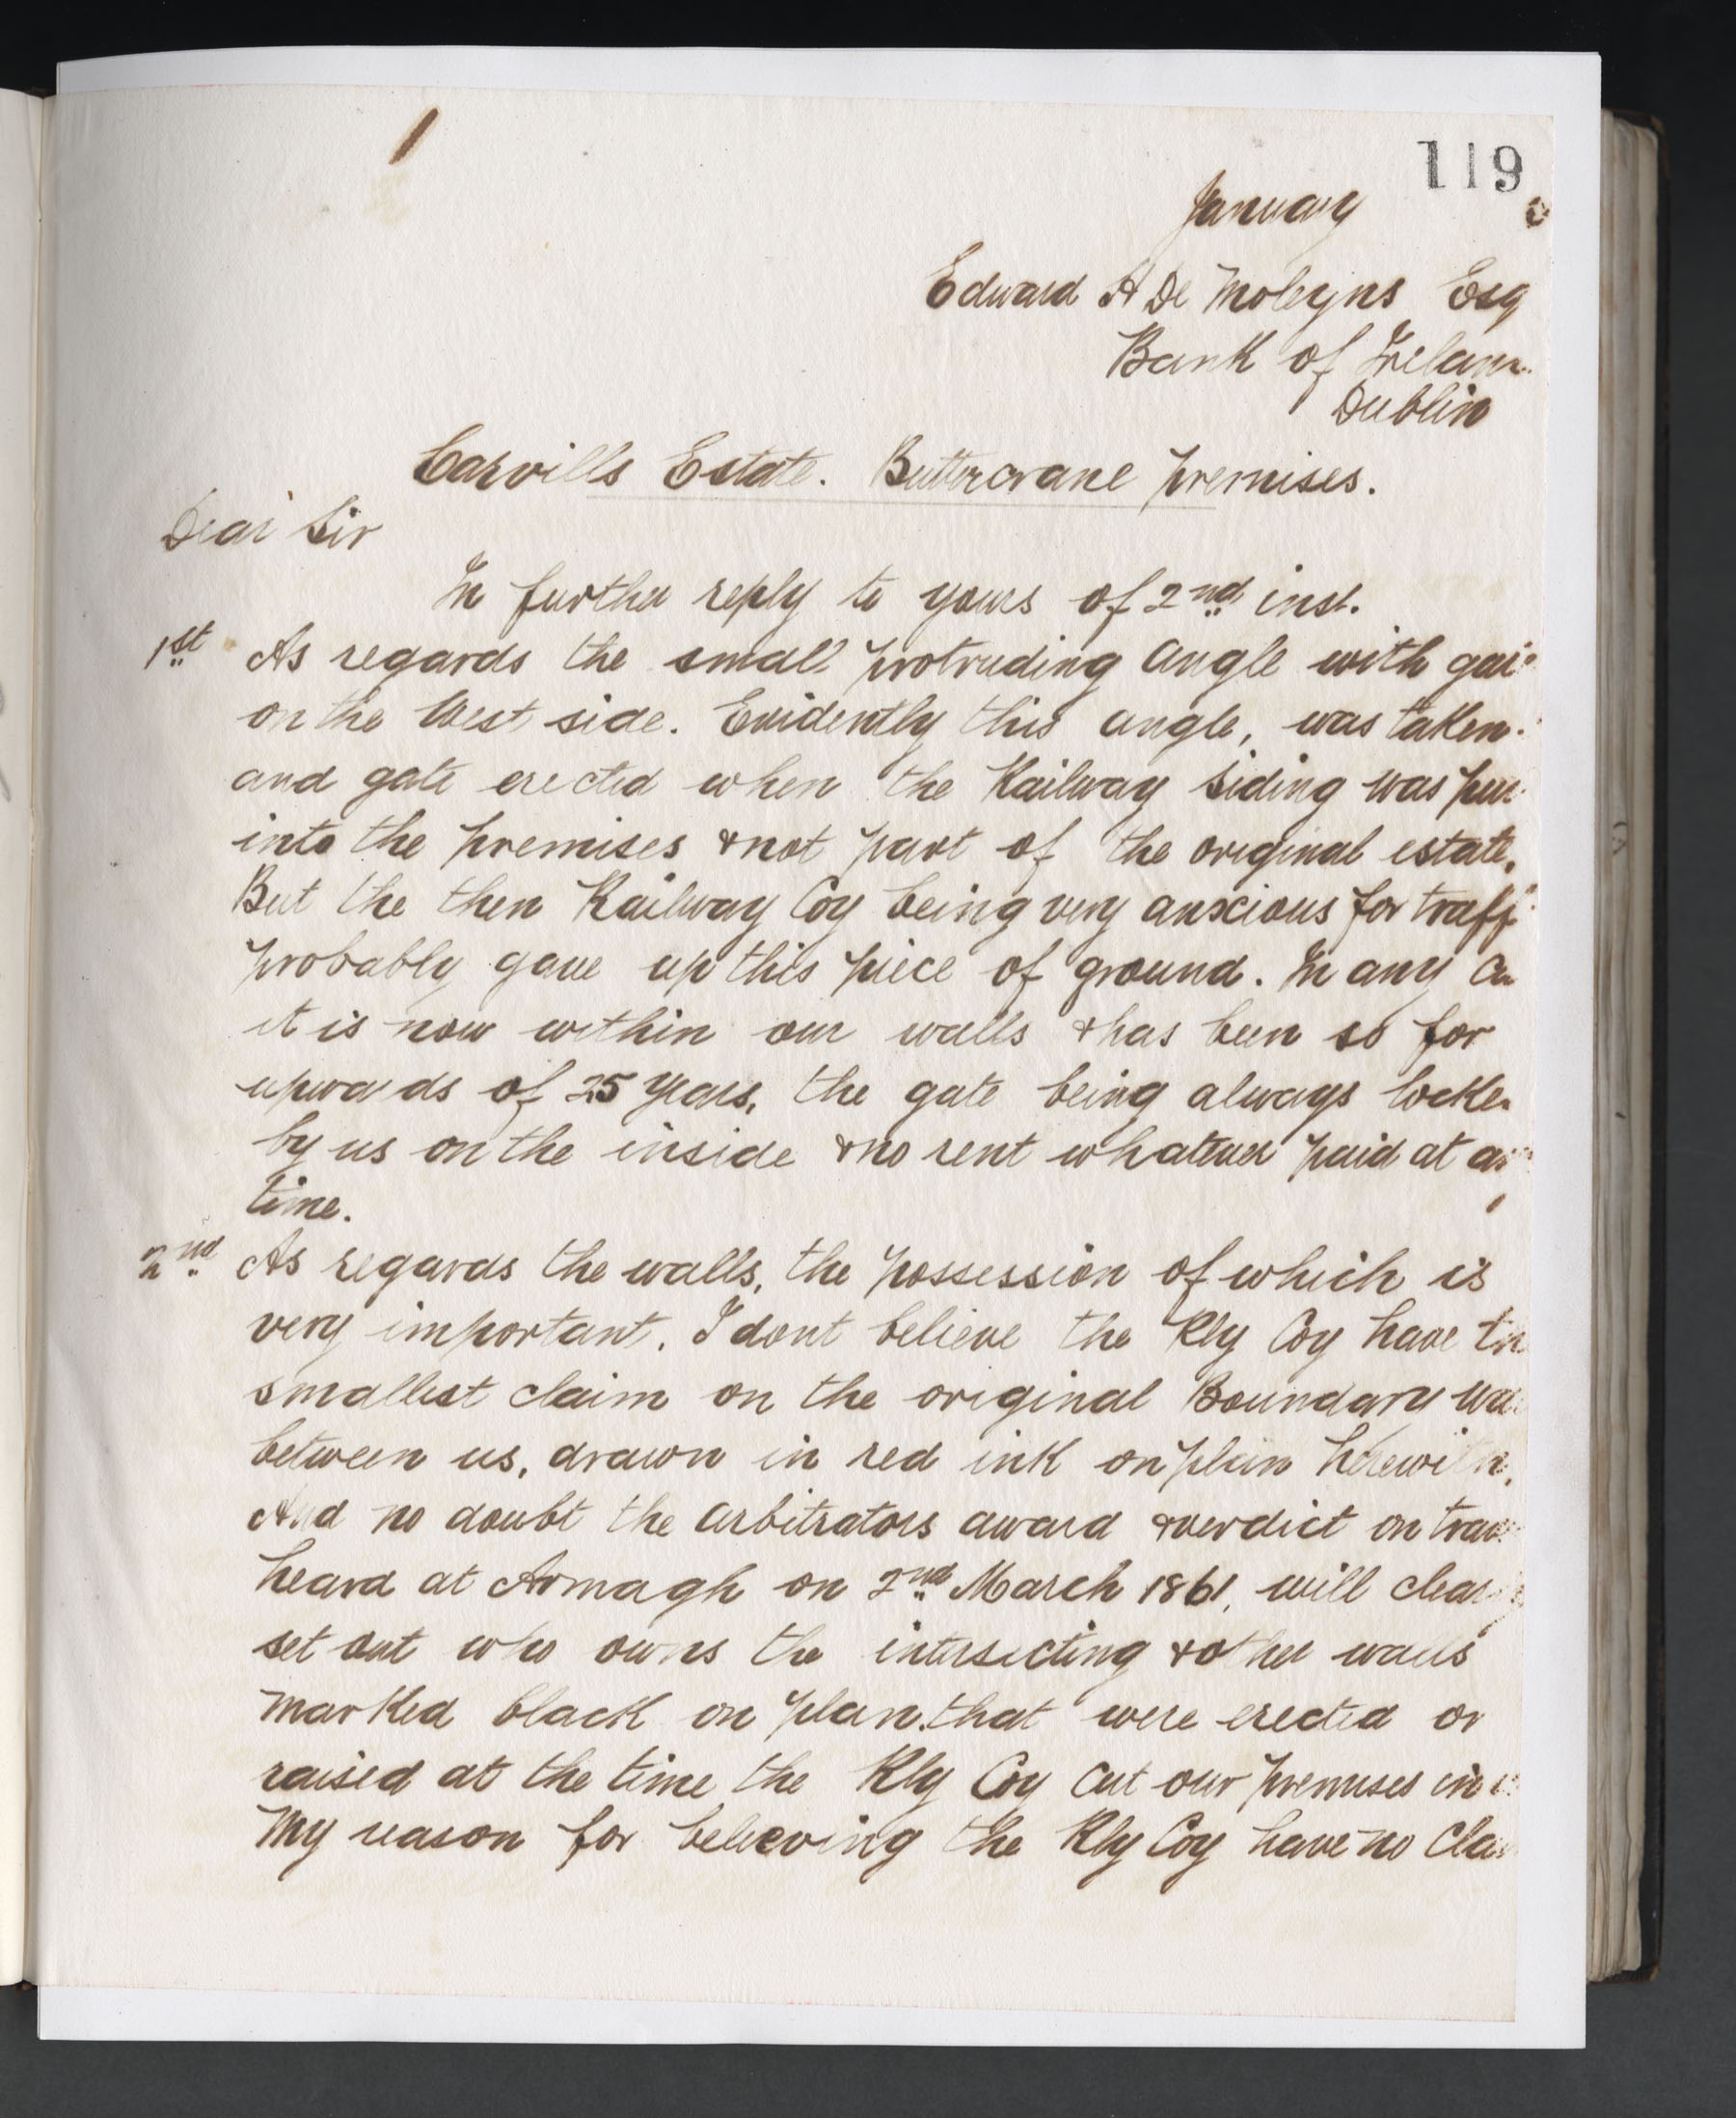 119
January
Edward A De Moleyns Esq
Bank of Irelan
Dublin
Carvills Estate. Buttercrane premises.
Dear Sir
In further reply to yours of 2nd inst.
1st As regards the small protruding angle with
on the West side. Evidently this angle, was taken
and gate erected when the Railway Siding was
into the premises & not part of the original estate.
But the then Railway Coy being very anxious for traff
probably gave up this piece of ground. In any
it is now within our walls & has been so for
upwards of 25 years, the gate being always locke
by us on the inside & no rent whatever paid at
time.
2nd As regards the walls, the possession of which is
very important. I dont believe the Rly Coy have
smallest claim on the original Boundary
between us, drawn in red ink on plan herewith.
And no doubt the arbitrators award & verdict on trav
heard at Armagh on 2nd March 1861, will clear
set out who owns the intersecting & other walls
marked black on plan. that were erected or
raised at the time the Rly Coy cut our premises in
My reason for believing the Rly Coy have no Cla